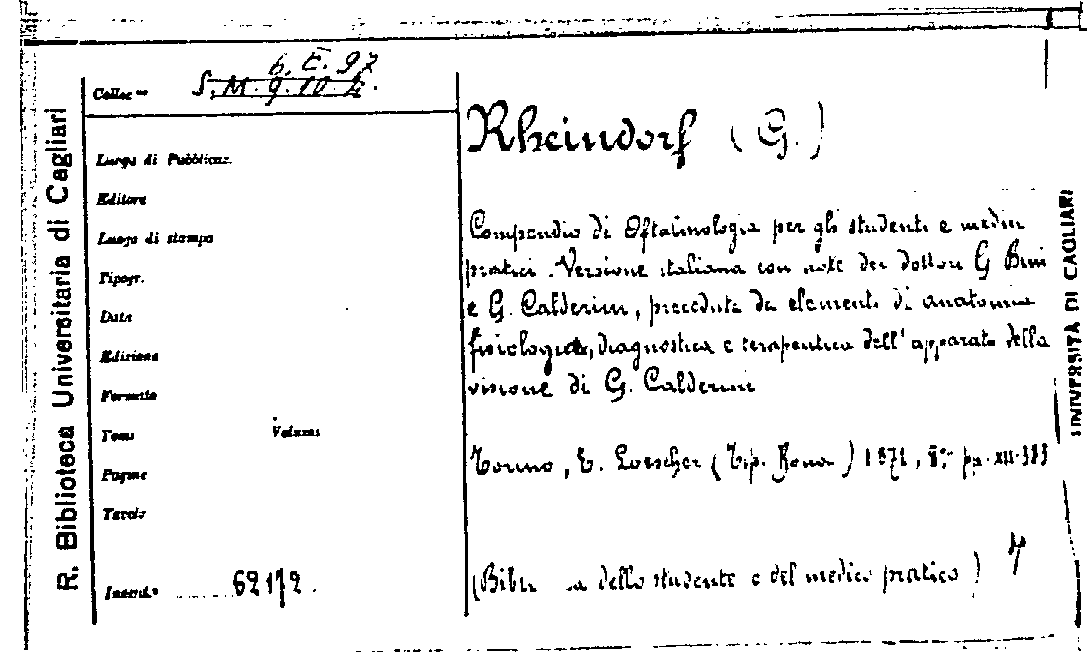 R. Biblioteca Universitaria di Cagliari
Colloc ne
6. E. 97
S. M. 9. 10. 4.
Luogo di Pubblicaz.
Editore
Luogo di stampa
Tipogr.
Data
Edizione
Formato
Tomi Volumi
Pagine
Tavole
62172.
Rheindorf (G.)
Compendio di Oftalmologia per gli studenti e medici
pratici. Versione italiana con note dei dottori G Bini
e G. Calderini, preceduta da elementi di anatomia
fisiologia, diagnostica e terapeutica dell' apparato della
visione di G. Calderini
Torino, E. Loescher (Tip. Bona) 1872, 8.° pp. XII-383
(Bibl a dello studente e del medico pratico) 4
UNIVERSITÀ DI CAGLIARI